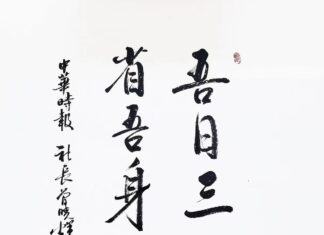 吾日三
省吾身
中華時報 社長曾曉輝